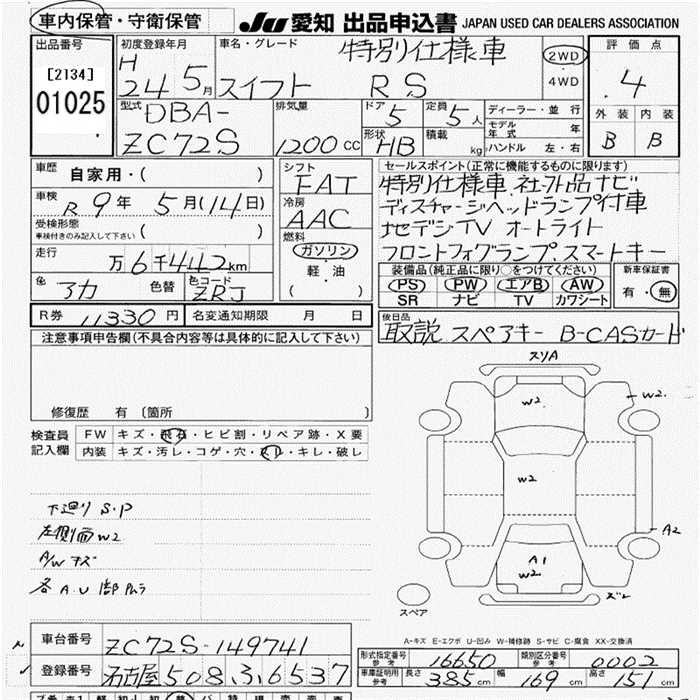 車内保管・守衛保管
JU 愛知 出品申込書 JAPAN USED CAR DEALERS ASSOCIATION
出品番号 初度登録年月 車名・グレード 特別仕様車 2WD 評価点
[2134] H 24 5月 スイフト RS 4WD 4
01025 型式 DBA- 排気量 ドア 5 定員 5人 ディーラー・並行 外装 内装
ZC72S 1200 CC 形状 HB 積載 kg モデル年式 年 B B
ハンドル 左・右
車歴 自家用・( ) シフト FAT セールスポイント(正常に機能するものに限ります)
車検 R 9年 5月(14日) 冷房 AAC 特別仕様車 社外品ナビ
受検形態 ( ) ディスチャージヘッドランプ付車
車検付きのみ記入して下さい 燃料 地デジTV オートライト
走行 万6千442km ガソリン フロントフォグランプ.スマートキー
軽・油 装備品(純正品に限り○をつけてください) 新車保証書
色 アカ 色替 色コード ZRJ ( ) PS PW エアB AW 有・無
SR ナビ TV カワシート
R券 11330円 名変通知期限 月 日 後日品
取説 スペアキー B-CASカード
注意事項申告欄(不具合内容等は具体的に記入して下さい)
修復歴 有 〔箇所 〕
検査員 FW キズ・飛石・ヒビ割・リペア跡・X要
記入欄 内装 キズ・汚レ・コゲ・穴・スレ・キレ・破レ
スリA
W2. W2.
W2
A2
A1
W2.
下廻り S.P
左側面W2
A/W キズ
各A.U
スペア
A-キズ E-エクボ U-凹み W-補修跡 S-サビ C-腐食 XX-交換済
車台番号 ZC72S-149741
登録番号 名古屋508.3,6537
形式指定番号 参考 16650 類別区分番号 参考 0002
車庫証明用 参考 長さ 385cm 幅 169cm 高さ 151cm